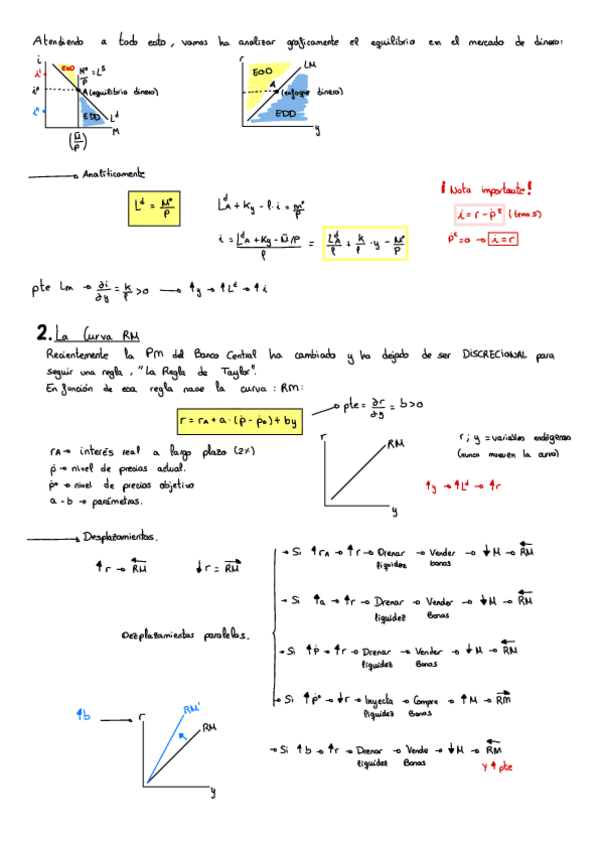 Atendiendo a todo esto, vamos ha analizar graficamente el equilibrio en el mercado de dinero:
i
EOD
M°/P = L^s
i¹
i°
A (equilibrio dinero)
i²
EDD
L^d
M
(M̄/P)
r
LM
EOD
A
(enfoque dinero)
EDD
y
Analíticamente
L^d = M°/P
L^d_A + Ky - l·i = m°/P
i = (L^d_A + Ky - M̄/P)/l = L^d_A/l + k/l · y - M°/P
¡Nota importante!
i = r - ṗ^e (tema 5)
ṗ^e = 0 → i = r
pte Lm → ∂i/∂y = k/l > 0 → ↑y → ↑L^d → ↑i
2. La Curva RM
Recientemente la Pm del Banco Central ha cambiado y ha dejado de ser DISCRECIONAL para
seguir una regla, "La Regla de Taylor".
En función de esa regla nace la curva: RM:
r = rA + a·(ṗ - ṗ°) + by
pte = ∂r/∂y = b > 0
rA → interés real a largo plazo (2%)
ṗ → nivel de precios actual.
ṗ° → nivel de precios objetivo
a - b → parámetros.
r
RM
y
r ; y = variables endógenas
(nunca mueven la curva)
↑y → ↑L^d → ↑r
Desplazamientos.
↑r → RM ←
↓r = RM →
Desplazamientos paralelos.
→ Si ↑rA → ↑r → Drenar liquidez → Vender bonos → ↓M → RM ←
→ Si ↑a → ↑r → Drenar liquidez → Vender Bonos → ↓M → RM ←
→ Si ↑ṗ → ↑r → Drenar liquidez → Vender Bonos → ↓M → RM ←
→ Si ↑ṗ° → ↓r → Inyecta liquidez → Compra Bonos → ↑M → RM →
↑b
r
RM'
RM
y
→ Si ↑b → ↑r → Drenar liquidez → Vende Bonos → ↓M → RM ←
Y ↑ pte